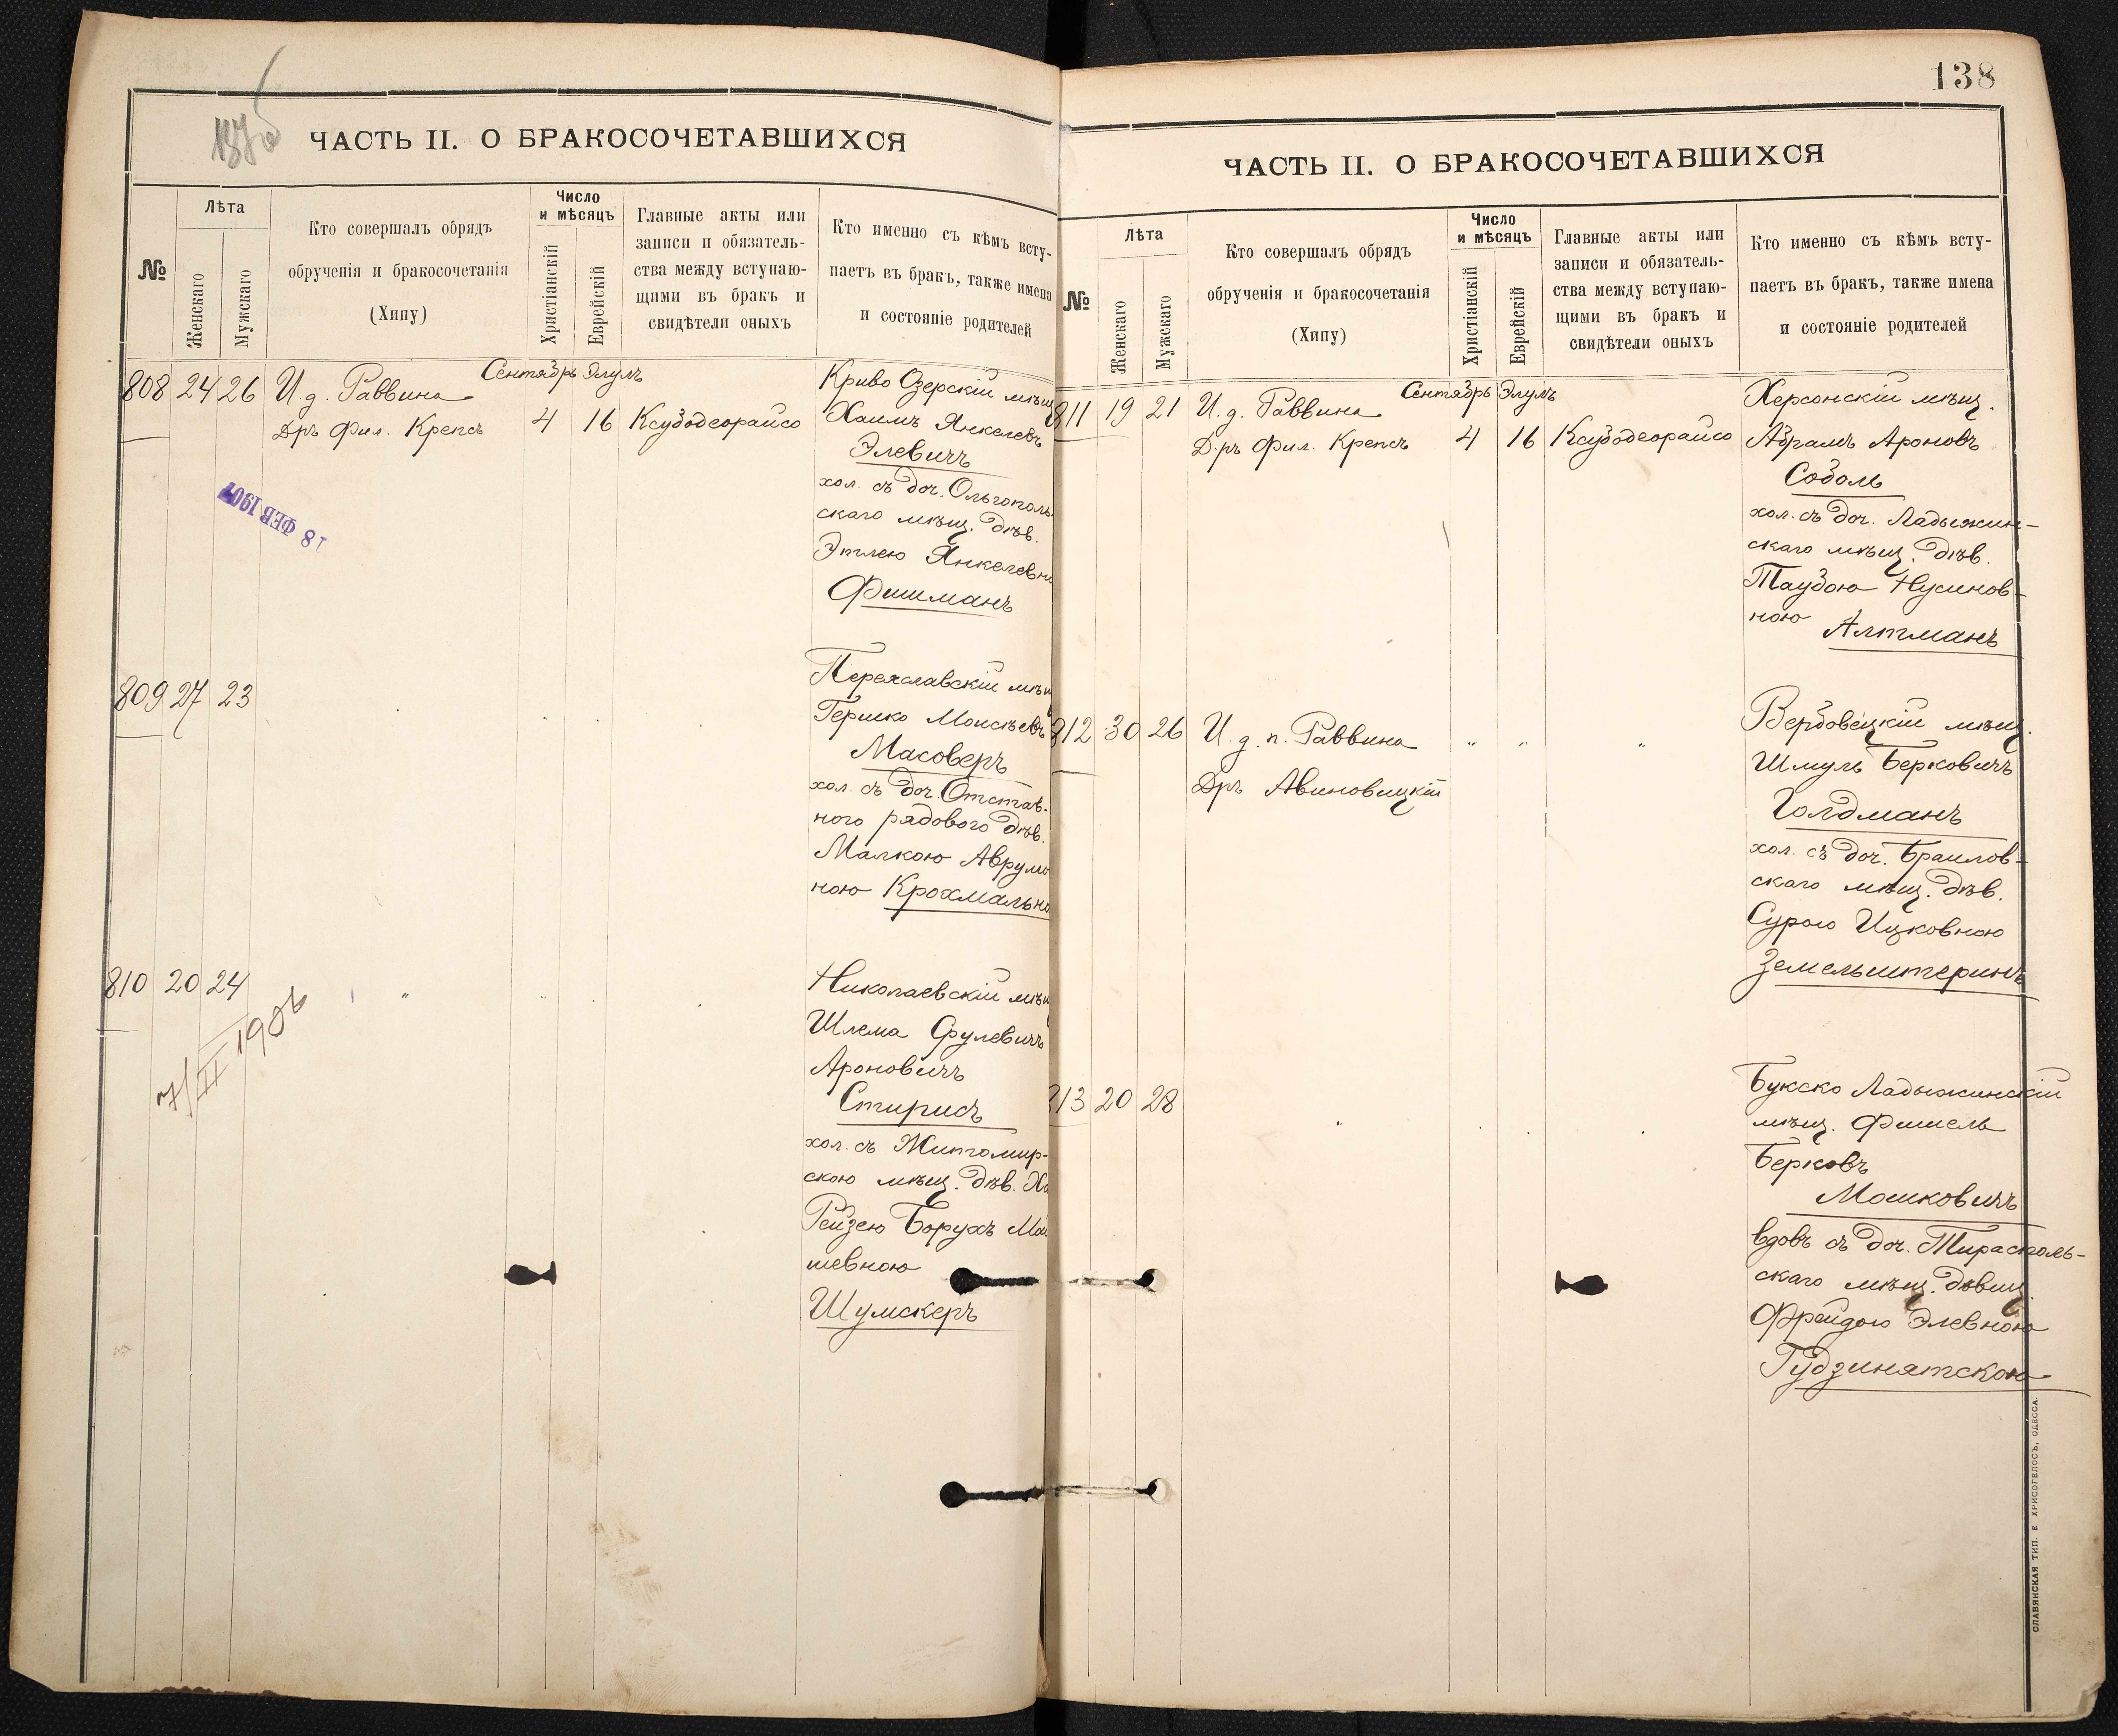 137об
ЧАСТЬ II. О БРАКОСОЧЕТАВШИХСЯ
№
Лѣта
Женскаго
Мужскаго
Кто совершалъ обрядъ
обрученія и бракосочетанія
(Хипу)
Число
и мѣсяцъ
Христіанскій
Еврейскій
Главные акты или
записи и обязатель-
ства между вступаю-
щими въ бракъ и
свидѣтели оныхъ
Кто именно съ кѣмъ всту-
паетъ въ бракъ, также имена
и состояніе родителей
Сентябрь Элулъ
808 24 26 И. д. Раввина
Дръ Фил. Крепсъ 4 16 Ксубодеорайсо
Криво Озерскій мѣщ
Хаимъ Янкелевъ
Элевичъ
хол. съ доч. Ольгополь-
скаго мѣщ. дѣв.
Этлею Янкелевн
Фишманъ
18 ФЕВ 1907
809 27 23
Переяславскій мѣщ
Гершко Моисѣевъ
Масоверъ
хол. съ доч. Отстав-
ного рядового дѣв.
Малкою Аврумо
ною Крохмальн
810 20 24 "
Николаевскій мѣщ
Шлема Срулевичъ
Ароновичъ
Стирисъ
хол. съ Житомир-
скою мѣщ. дѣв. Ха
Рейзею Борухъ Мой
шевною
Шумскеръ
7/II 1906
138
ЧАСТЬ II. О БРАКОСОЧЕТАВШИХСЯ
№
Лѣта
Женскаго
Мужскаго
Кто совершалъ обрядъ
обрученія и бракосочетанія
(Хипу)
Число
и мѣсяцъ
Христіанскій
Еврейскій
Главные акты или
записи и обязатель-
ства между вступаю-
щими въ бракъ и
свидѣтели оныхъ
Кто именно съ кѣмъ всту-
паетъ въ бракъ, также имена
и состояніе родителей
Сентябрь Элулъ
811 19 21 И. д. Раввина
Д.ръ Фил. Крепсъ 4 16 Ксубодеорайсо
Херсонскій мѣщ.
Абрамъ Ароновъ
Соболь
хол. съ доч. Ладыжин-
скаго мѣщ. дѣв.
Таубою Нусинов-
ною Алтманъ
812 30 26 И. д. п. Раввина " " "
Дръ Авиновицкій
Вербовецкій мѣщ.
Шмуль Берковичъ
Голдманъ
хол. съ доч. Браилов-
скаго мѣщ. дѣв.
Сурою Ицковною
Земельштеринъ
813 20 28 "
Букско Ладыжинскій
мѣщ. Фишель
Берковъ
Мошковичъ
вдовъ съ доч. Тирасполь-
скаго мѣщ. дѣвиц.
Фрейдою Элевною
Гудзинятскою
СЛАВЯНСКАЯ ТИП. Е ХРИСОГЕЛОСЪ, ОДЕССА.